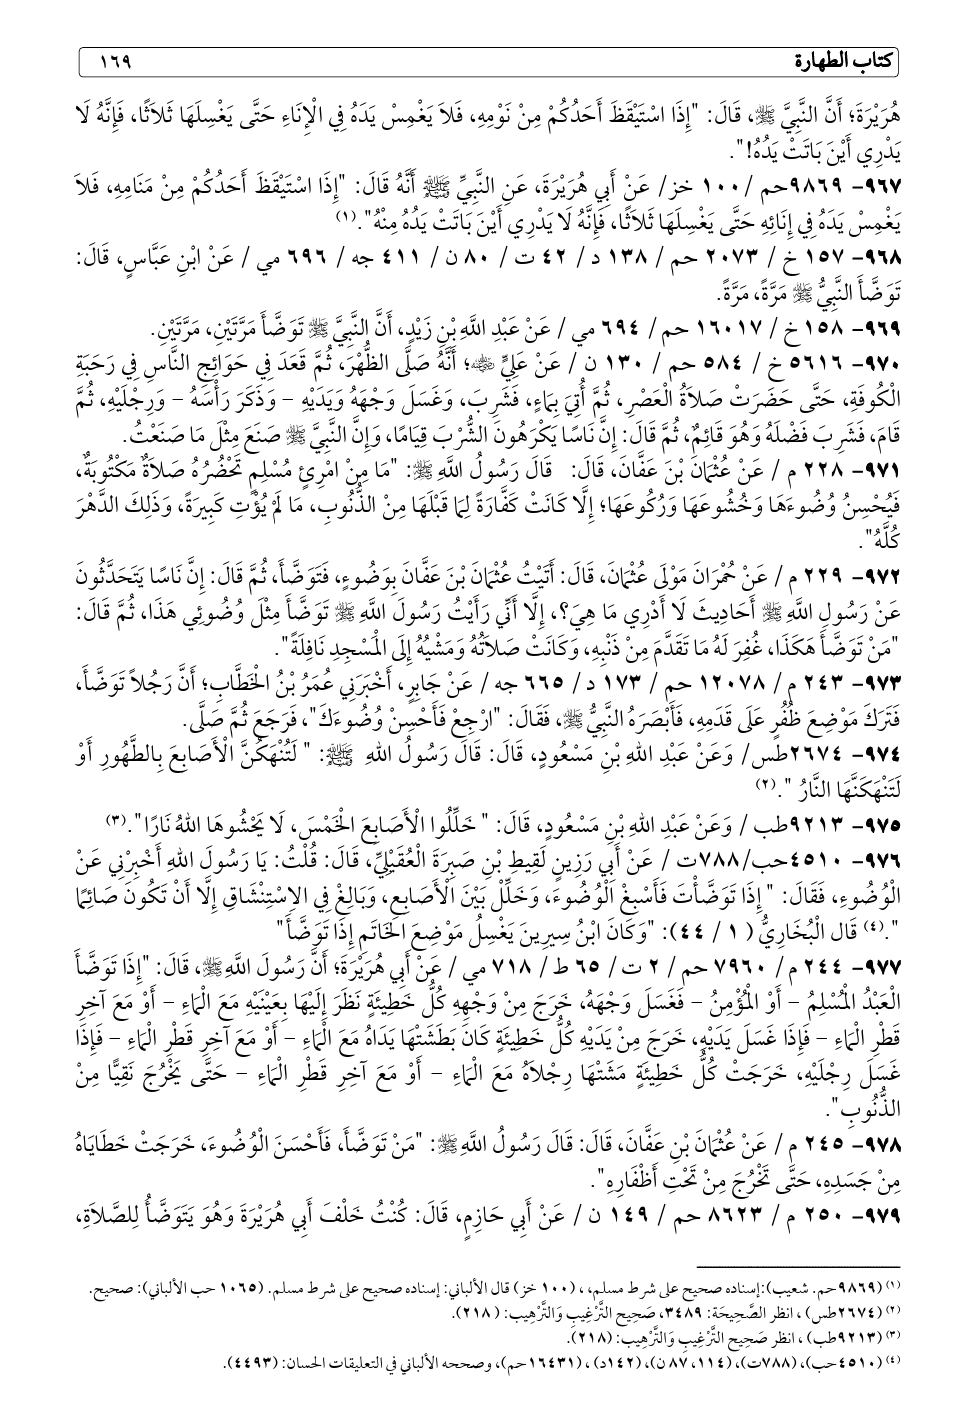 كتاب الطهارة ١٦٩
هُرَيْرَةَ؛ أَنَّ النَّبِيَّ ﷺ، قَالَ: "إِذَا اسْتَيْقَظَ أَحَدُكُمْ مِنْ نَوْمِهِ، فَلاَ يَغْمِسْ يَدَهُ فِي الْإِنَاءِ حَتَّى يَغْسِلَهَا ثَلاَثًا، فَإِنَّهُ لَا
يَدْرِي أَيْنَ بَاتَتْ يَدُهُ!".
٩٦٧- ٩٨٦٩حم /١٠٠ خز/ عَنْ أَبِي هُرَيْرَةَ، عَنِ النَّبِيِّ ﷺ أَنَّهُ قَالَ: "إِذَا اسْتَيْقَظَ أَحَدُكُمْ مِنْ مَنَامِهِ، فَلاَ
يَغْمِسْ يَدَهُ فِي إِنَائِهِ حَتَّى يَغْسِلَهَا ثَلاَثًا، فَإِنَّهُ لَا يَدْرِي أَيْنَ بَاتَتْ يَدُهُ مِنْهُ".(١)
٩٦٨- ١٥٧ خ / ٢٠٧٣ حم / ١٣٨ د / ٤٢ ت / ٨٠ ن / ٤١١ جه / ٦٩٦ مي / عَنْ ابْنِ عَبَّاسٍ، قَالَ:
تَوَضَّأَ النَّبِيُّ ﷺ مَرَّةً، مَرَّةً.
٩٦٩- ١٥٨ خ / ١٦٠١٧ حم / ٦٩٤ مي / عَنْ عَبْدِ اللَّهِ بْنِ زَيْدٍ، أَنَّ النَّبِيَّ ﷺ تَوَضَّأَ مَرَّتَيْنِ، مَرَّتَيْنِ.
٩٧٠- ٥٦١٦ خ / ٥٨٤ حم / ١٣٠ ن / عَنْ عَلِيٍّ ؛ أَنَّهُ صَلَّى الظُّهْرَ، ثُمَّ قَعَدَ فِي حَوَائِجِ النَّاسِ فِي رَحَبَةِ
الْكُوفَةِ، حَتَّى حَضَرَتْ صَلاَةُ الْعَصْرِ، ثُمَّ أُتِيَ بِمَاءٍ، فَشَرِبَ، وَغَسَلَ وَجْهَهُ وَيَدَيْهِ – وَذَكَرَ رَأْسَهُ – وَرِجْلَيْهِ، ثُمَّ
قَامَ، فَشَرِبَ فَضْلَهُ وَهُوَ قَائِمٌ، ثُمَّ قَالَ: إِنَّ نَاسًا يَكْرَهُونَ الشُّرْبَ قِيَامًا، وَإِنَّ النَّبِيَّ ﷺ صَنَعَ مِثْلَ مَا صَنَعْتُ.
٩٧١- ٢٢٨ م / عَنْ عُثْمَانَ بْنَ عَفَّانَ، قَالَ: قَالَ رَسُولُ اللَّهِ ﷺ: "مَا مِنْ امْرِئٍ مُسْلِمٍ تَحْضُرُهُ صَلاَةٌ مَكْتُوبَةٌ،
فَيُحْسِنُ وُضُوءَهَا وَخُشُوعَهَا وَرُكُوعَهَا؛ إِلَّا كَانَتْ كَفَّارَةً لِمَا قَبْلَهَا مِنْ الذُّنُوبِ، مَا لَمْ يُؤْتِ كَبِيرَةً، وَذَلِكَ الدَّهْرَ
كُلَّهُ".
٩٧٢- ٢٢٩ م / عَنْ حُمْرَانَ مَوْلَى عُثْمَانَ، قَالَ: أَتَيْتُ عُثْمَانَ بْنَ عَفَّانَ بِوَضُوءٍ، فَتَوَضَّأَ، ثُمَّ قَالَ: إِنَّ نَاسًا يَتَحَدَّثُونَ
عَنْ رَسُولِ اللَّهِ ﷺ أَحَادِيثَ لَا أَدْرِي مَا هِيَ؟، إِلَّا أَنِّي رَأَيْتُ رَسُولَ اللَّهِ ﷺ تَوَضَّأَ مِثْلَ وُضُوئِي هَذَا، ثُمَّ قَالَ:
"مَنْ تَوَضَّأَ هَكَذَا، غُفِرَ لَهُ مَا تَقَدَّمَ مِنْ ذَنْبِهِ، وَكَانَتْ صَلاَتُهُ وَمَشْيُهُ إِلَى الْمَسْجِدِ نَافِلَةً".
٩٧٣- ٢٤٣ م / ١٢٠٧٨ حم / ١٧٣ د / ٦٦٥ جه / عَنْ جَابِرٍ، أَخْبَرَنِي عُمَرُ بْنُ الْخَطَّابِ؛ أَنَّ رَجُلاً تَوَضَّأَ،
فَتَرَكَ مَوْضِعَ ظُفُرٍ عَلَى قَدَمِهِ، فَأَبْصَرَهُ النَّبِيُّ ﷺ، فَقَالَ: "ارْجِعْ فَأَحْسِنْ وُضُوءَكَ"، فَرَجَعَ ثُمَّ صَلَّى.
٩٧٤- ٢٦٧٤طس/ وَعَنْ عَبْدِ اللهِ بْنِ مَسْعُودٍ، قَالَ: قَالَ رَسُولُ اللهِ ﷺ: " لَتُنْهَكُنَّ الْأَصَابِعَ بِالطَّهُورِ أَوْ
لَتَنْهَكَنَّهَا النَّارُ ".(٢)
٩٧٥- ٩٢١٣طب / وَعَنْ عَبْدِ اللهِ بْنِ مَسْعُودٍ، قَالَ: " خَلِّلُوا الْأَصَابِعَ الْخَمْسَ، لَا يَحْشُوهَا اللهُ نَارًا ".(٣)
٩٧٦- ٤٥١٠حب/٧٨٨ت / عَنْ أَبِي رَزِينٍ لَقِيطِ بْنِ صَبِرَةَ الْعُقَيْلِيِّ، قَالَ: قُلْتُ: يَا رَسُولَ اللهِ أَخْبِرْنِي عَنْ
الْوُضُوءِ، فَقَالَ: "إِذَا تَوَضَّأْتَ فَأَسْبِغْ الْوُضُوءَ، وَخَلِّلْ بَيْنَ الْأَصَابِعِ، وَبَالِغْ فِي الِاسْتِنْشَاقِ إِلَّا أَنْ تَكُونَ صَائِمًا
".(٤) قَالَ الْبُخَارِيُّ ( ١ / ٤٤): "وَكَانَ ابْنُ سِيرِينَ يَغْسِلُ مَوْضِعَ الخَاتَمِ إِذَا تَوَضَّأَ"
٩٧٧- ٢٤٤ م / ٧٩٦٠ حم / ٢ ت / ٦٥ ط / ٧١٨ مي / عَنْ أَبِي هُرَيْرَةَ؛ أَنَّ رَسُولَ اللَّهِ ﷺ، قَالَ: "إِذَا تَوَضَّأَ
الْعَبْدُ الْمُسْلِمُ – أَوْ الْمُؤْمِنُ – فَغَسَلَ وَجْهَهُ، خَرَجَ مِنْ وَجْهِهِ كُلُّ خَطِيئَةٍ نَظَرَ إِلَيْهَا بِعَيْنَيْهِ مَعَ الْمَاءِ – أَوْ مَعَ آخِرِ
قَطْرِ الْمَاءِ – فَإِذَا غَسَلَ يَدَيْهِ، خَرَجَ مِنْ يَدَيْهِ كُلُّ خَطِيئَةٍ كَانَ بَطَشَتْهَا يَدَاهُ مَعَ الْمَاءِ – أَوْ مَعَ آخِرِ قَطْرِ الْمَاءِ – فَإِذَا
غَسَلَ رِجْلَيْهِ، خَرَجَتْ كُلُّ خَطِيئَةٍ مَشَتْهَا رِجْلاَهُ مَعَ الْمَاءِ – أَوْ مَعَ آخِرِ قَطْرِ الْمَاءِ – حَتَّى يَخْرُجَ نَقِيًّا مِنْ
الذُّنُوبِ".
٩٧٨- ٢٤٥ م / عَنْ عُثْمَانَ بْنِ عَفَّانَ، قَالَ: قَالَ رَسُولُ اللَّهِ ﷺ: "مَنْ تَوَضَّأَ، فَأَحْسَنَ الْوُضُوءَ، خَرَجَتْ خَطَايَاهُ
مِنْ جَسَدِهِ، حَتَّى تَخْرُجَ مِنْ تَحْتِ أَظْفَارِهِ".
٩٧٩- ٢٥٠ م / ٨٦٢٣ حم / ١٤٩ ن / عَنْ أَبِي حَازِمٍ، قَالَ: كُنْتُ خَلْفَ أَبِي هُرَيْرَةَ وَهُوَ يَتَوَضَّأُ لِلصَّلاَةِ،
(١) (٩٨٦٩حم. شعيب):إسناده صحيح على شرط مسلم، ، (١٠٠ خز) قال الألباني: إسناده صحيح على شرط مسلم. (١٠٦٥ حب الألباني): صحيح.
(٢) (٢٦٧٤طس) ، انظر الصَّحِيحَة: ٣٤٨٩، صَحِيح التَّرْغِيبِ وَالتَّرْهِيب: (٢١٨).
(٣) (٩٢١٣طب) ، انظر صَحِيح التَّرْغِيبِ وَالتَّرْهِيب: (٢١٨).
(٤) (٤٥١٠حب)، (٧٨٨ت)، (١١٤، ٨٧ ن)، (١٤٢د) ، (١٦٤٣١حم)، وصححه الألباني في التعليقات الحسان: (٤٤٩٣).